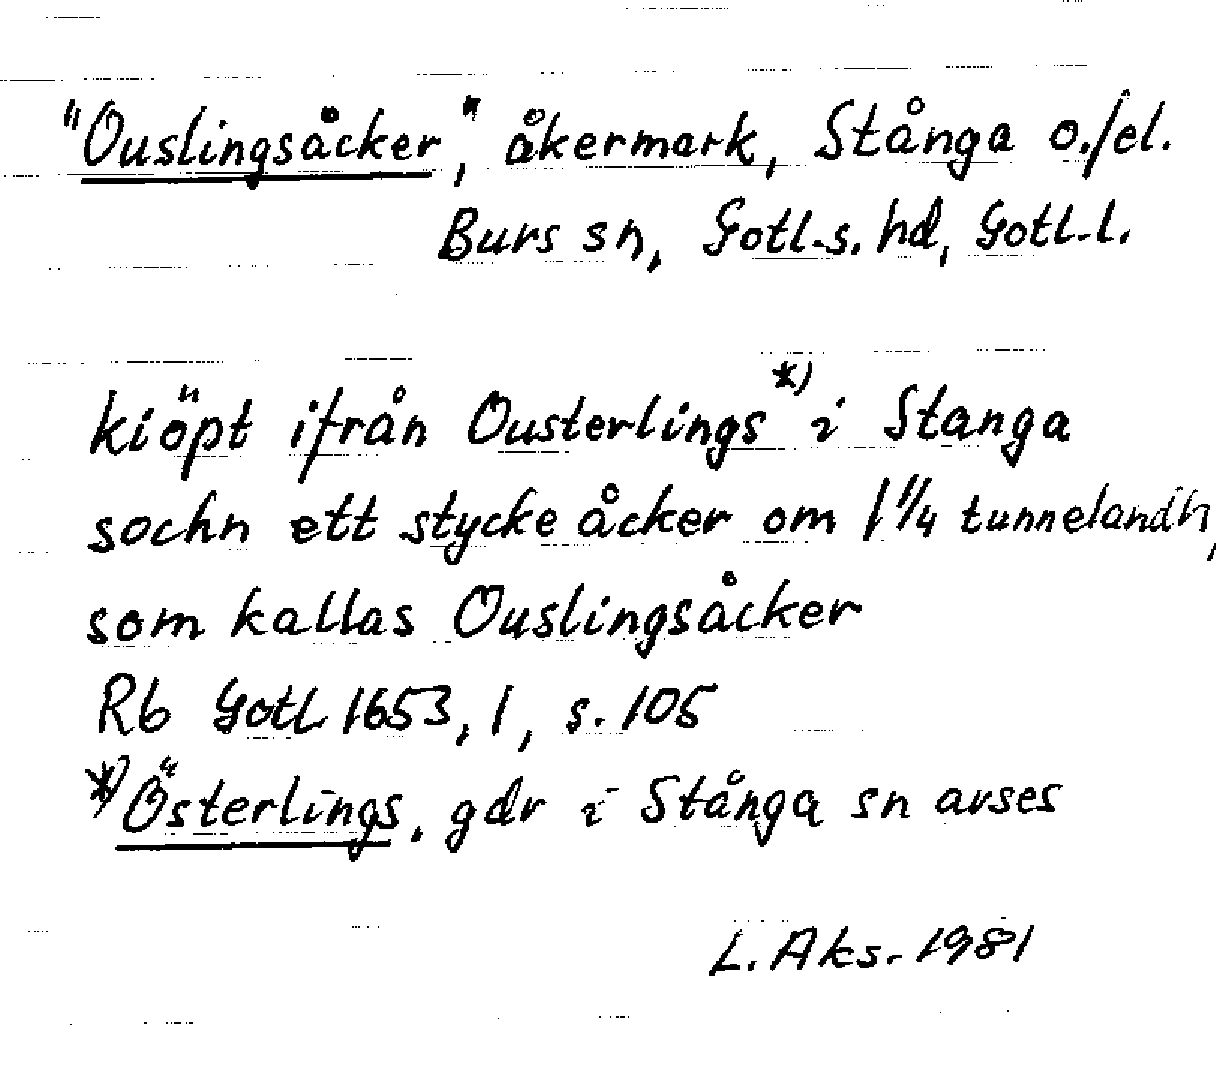 "Ouslingsåcker", åkermark, Stånga o./el.
Burs sn, Gotl.s. hd, Gotl.l.
kiöpt ifrån Ousterlings*) i Stanga
sochn ett stycke åcker om 1 1/4 tunnelandh,
som kallas Ouslingsåcker
Rb Gotl 1653, 1, s. 105
*) Österlings, gdr i Stånga sn avses
L. Aks. 1981